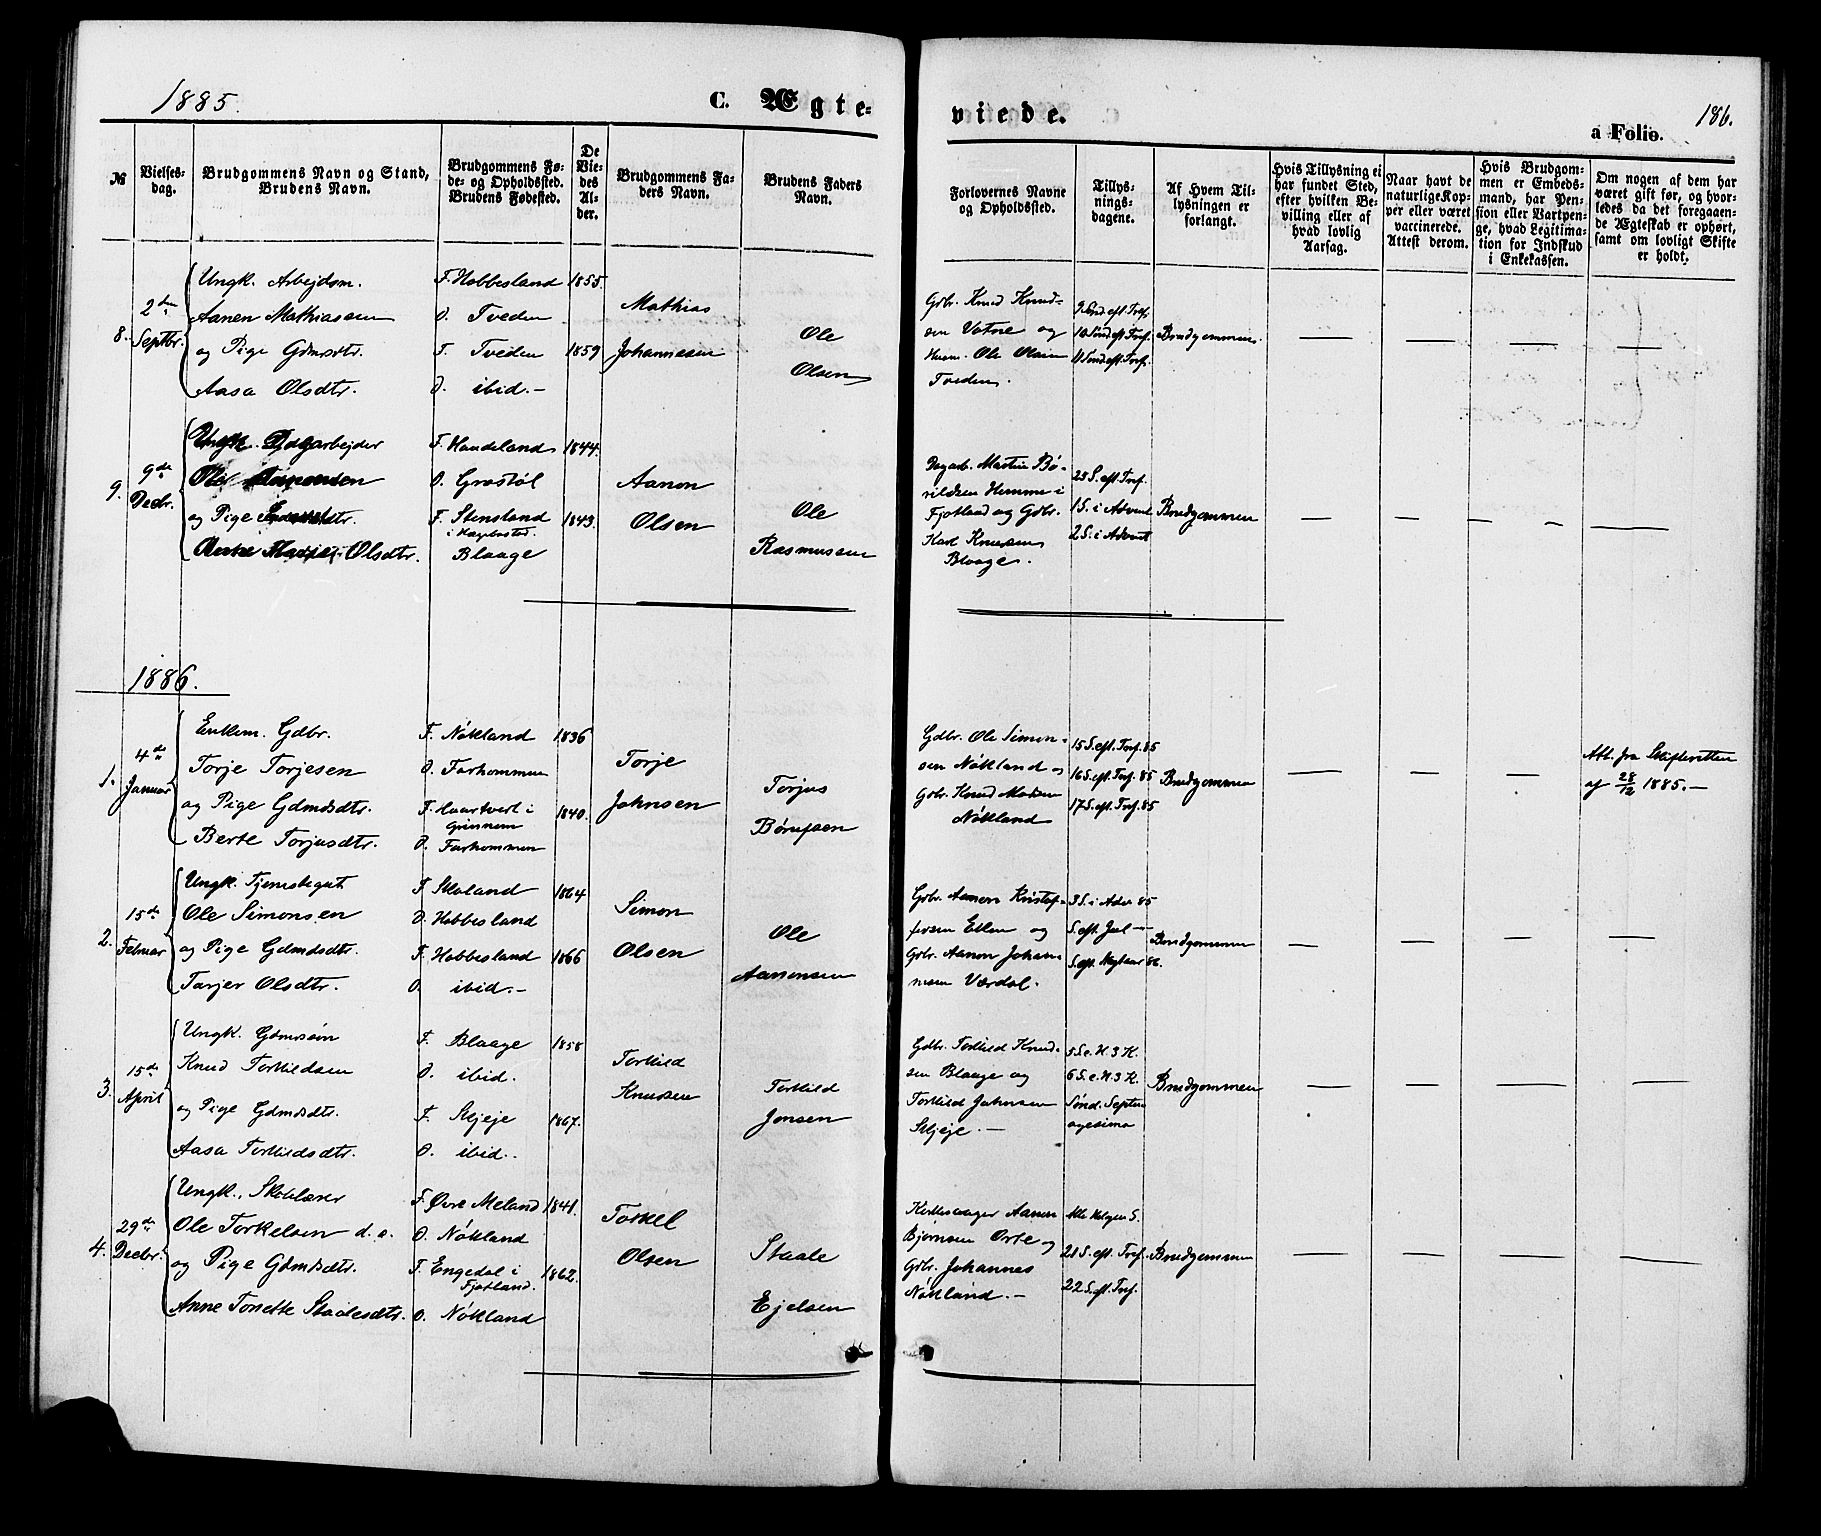 1885.
C. Ægte-
viede.
186.
a Folio.
№
Vielses-
dag.
Brudgommens Navn og Stand,
Brudens Navn.
Brudgommens Fø-
de- og Opholdssted.
Brudens Fødested.
De
Vie-
des
Al-
der.
Brudgommens Fa-
ders Navn.
Brudens Faders
Navn.
Forlovernes Navne
og Opholdssted.
Tillys-
nings-
dagene.
Af Hvem Til-
lysningen er
forlangt.
Hvis Tillysning ei
har fundet Sted,
efter hvilken Be-
villing eller af
hvad lovlig
Aarsag.
Naar havt de
naturlige Kop-
per eller været
vaccinerede.
Attest derom.
Hvis Brudgom-
men er Embeds-
mand, har Pen-
sion eller Vartpen-
ge, hvad Legitima-
tion for Indskud
i Enkekassen.
Om nogen af dem har
været gift før, og hvor-
ledes da det foregaaen-
de Ægteskab er ophørt,
samt om lovligt Skifte
er holdt.
8.
2den
Septbr.
Ungk. Arbejdsm.
Aanen Mathiassen
og Pige Gdmdsdtr.
Aasa Olsdtr.
F. Hobbesland
O. Tveden
F. Tveden
O. ibid.-
1855.
1859
Mathias
Johannesen
Ole
Olsen
Gdbr. Knud Knud-
sen Votne og
Husm. Ole Olsen
Tveden.
9 Sønd. eft. Tref.
10 Sønd. eft. Tref.
11 Sønd. eft. Tref.
Brudgommen.
9.
9de
Decbr.
Ungk. Dagarbejder
og Pige
Olsdtr.
F. Haudeland
O. Grostøl
F. Stensland
i Hægebostad.
Blaage
1844.
1843.
Aanon
Olsen
Ole
Rasmussen
Dagarb. Martin Bø-
rildsen Hemme i
Fjotland og Gdbr.
Karl Knudsen
Blaage.
25 S. eft. Tref.
1 S. i Advent
2 S. i Advent
Brudgommen
1886.
1.
4de
Januar
Enkem. Gdbr.
Torje Torjesen
og Pige Gdmdsdtr.
Berte Torjusdtr.
F. Nökland
O. Farhommen
F. Haartveit i
Grinnem
O. Farhommen
1836
1840.
Torje
Johnsen
Torjus
Børufsen
Gdbr. Ole Simon-
sen Nökland og
Gdbr. Knud
Nökland
15 S. eft. Tref. 85
16 S. eft. Tref. 85
17 S. eft. Tref. 85
Brudgommen
Att. fra Skifteretten
af 28/12 1885.-
2.
15de
Februar
Ungk. Tjenestegut
Ole Simonsen
og Pige Gdmdsdtr.
Tarjer Olsdtr.
F. Skoland
O. Hobbesland
F. Hobbesland
O. ibid.-
1864
1866
Simon
Olsen
Ole
Aanonsen
Gdbr. Aanen Kristof-
fersen Ellen og
Gdbr. Aanon Johan-
nesen Værdal.
3 S. i Adv. 85
S. eft. Jul -
S. eft. Nytaar 86.
Brudgommen
3.
15de
April
Ungk. Gdmdssøn
Knud Torkildsen
og Pige Gdmdsdtr.
Aasa Torkildsdtr.
F. Blaage
O. ibid.
F. Skjeje
O. ibid.
1858
1867.
Torkild
Knudsen
Torkild
Jonsen
Gdbr. Torkild Knud-
sen Blaage og
Torkild Johnsen
Skjeje.-
5 S. e. H. 3 K.
6 S. e. H. 3 K.
Sønd. Septua
agesima
Brudgommen
4.
29de
Decbr.
Ungk. Skolelærer
Ole Torkelsen d. e.
og Pige Gdmdsdtr.
Anne Tonette Staalesdtr.
F. Øvre Meland
O. Nökland
F. Engedal i
Fjotland.
O. Nökland
1841.
1862.
Torkel
Olsen
Staale
Ejelsen
Kirkesanger Aanen
Bjørnsen Orte og
Gdbr. Johannes
Nökland.-
Alle Helgen S.
21 S. eft. Tref.
22 S. eft. Tref.
Brudgommen